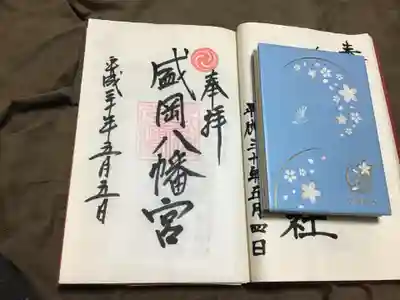 奉
社
平成三十年五月四日
奉拝
盛岡八幡宮
平成三十年五月五日